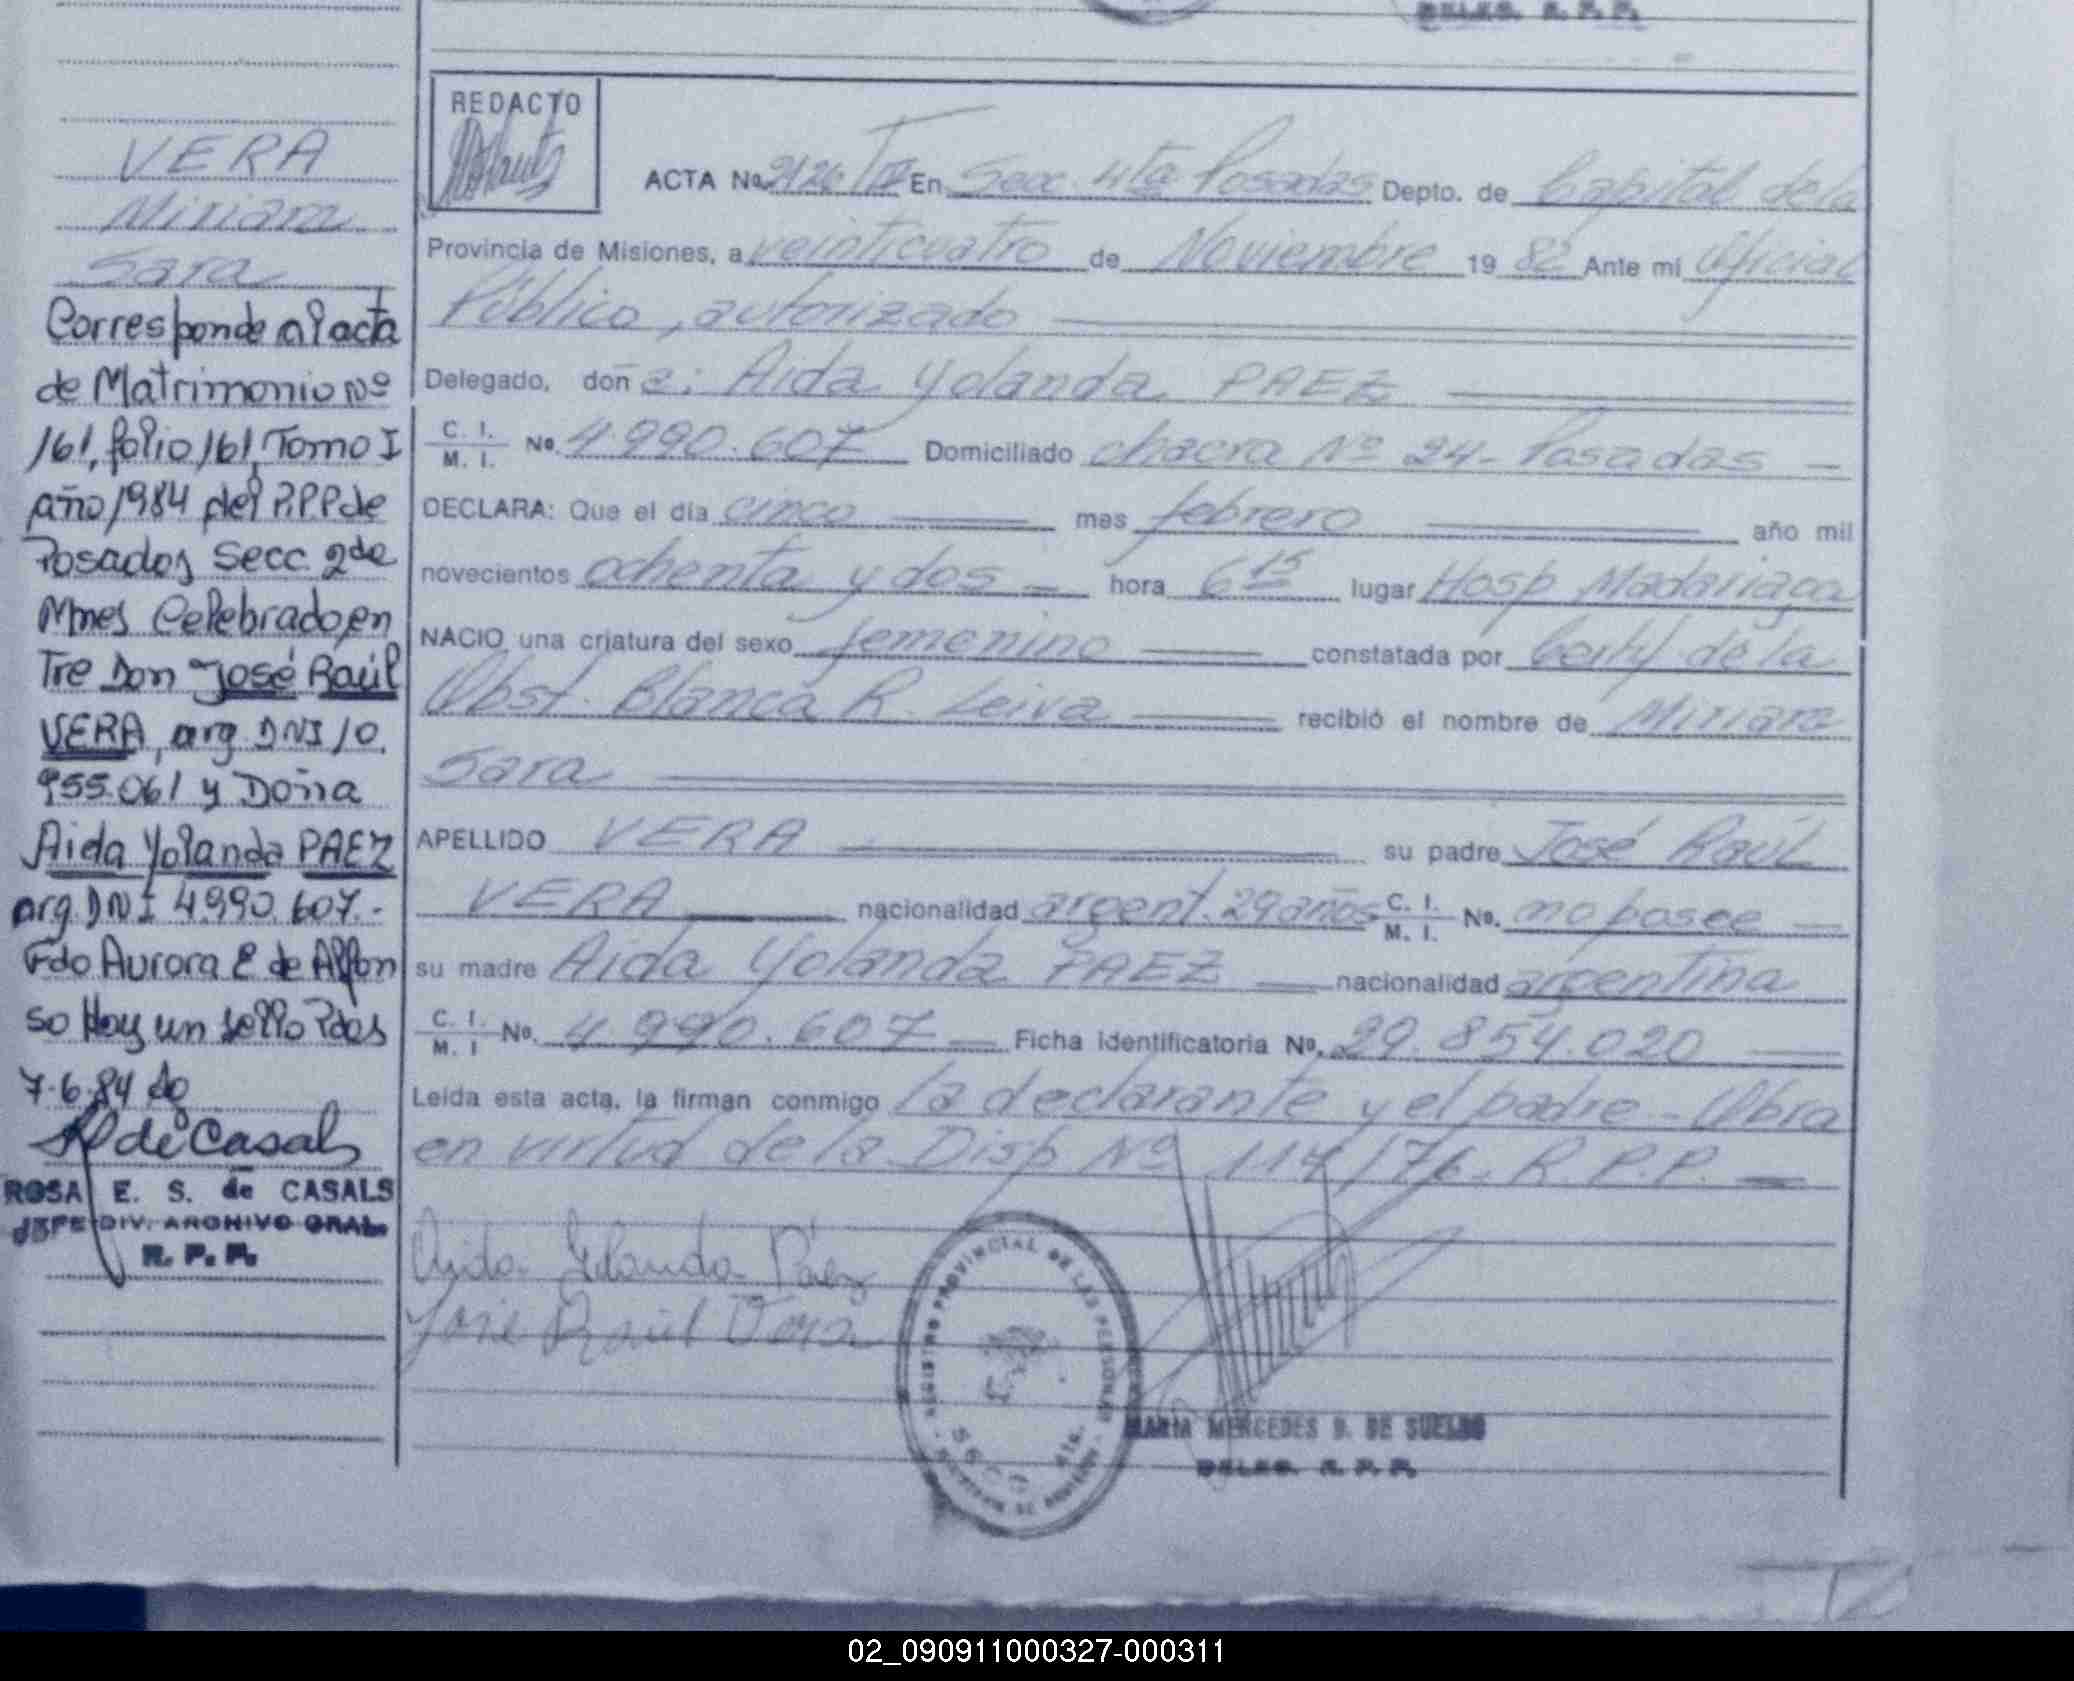 DELEG. R. P. P.
REDACTO
VERA
Miriam
Sara
Corresponde al acta
de Matrimonio Nº
161, folio 161, Tomo I
año 1984 del P.P.P de
Posadas Secc. 2da
Mnes Celebrado, en
Tre Don José Raúl
VERA, arg DNI 10.
955.061 y Doña
Aida Yolanda PAEZ
arg. DNI 4.990.607.-
Fdo Aurora E de Alfon
so Hay un sello Pdas
7.6.84
de Casals
ROSA E. S. de CASALS
JEFE DIV. ARCHIVO GRAL.
R. P. P.
ACTA No. 2126 En Secc. 4ta Posadas Depto. de Capital de la
Provincia de Misiones, a veinticuatro de Noviembre 19 82 Ante mi Oficial
Público, autorizado
Delegado, doña: Aida Yolanda PAEZ
C. I. M. I. No. 4.990.607 Domiciliado chacra Nº 24 - Posadas -
DECLARA: Que el día cinco mes febrero año mil
novecientos ochenta y dos hora 6 15 lugar Hosp Madariaga
NACIO una criatura del sexo femenino constatada por Certif de la
Obst. Blanca R. Leiva recibió el nombre de Miriam
Sara
APELLIDO VERA su padre José Raúl
VERA nacionalidad argent. 29 años C. I. M. I. No. no posee
su madre Aida Yolanda PAEZ nacionalidad argentina
C. I. M. I No. 4.990.607 Ficha identificatoria No. 29.854.020
Leída esta acta, la firman conmigo la declarante y el padre - Obra
en virtud de la Disp Nº 114/76. R. P. P.
Aida Yolanda Páez
José Raúl Vera
REGISTRO PROVINCIAL DE LAS PERSONAS
SECC. 4ta.
MARIA MERCEDES D. DE SUELDO
DELEG. R. P. P.
02_090911000327-000311